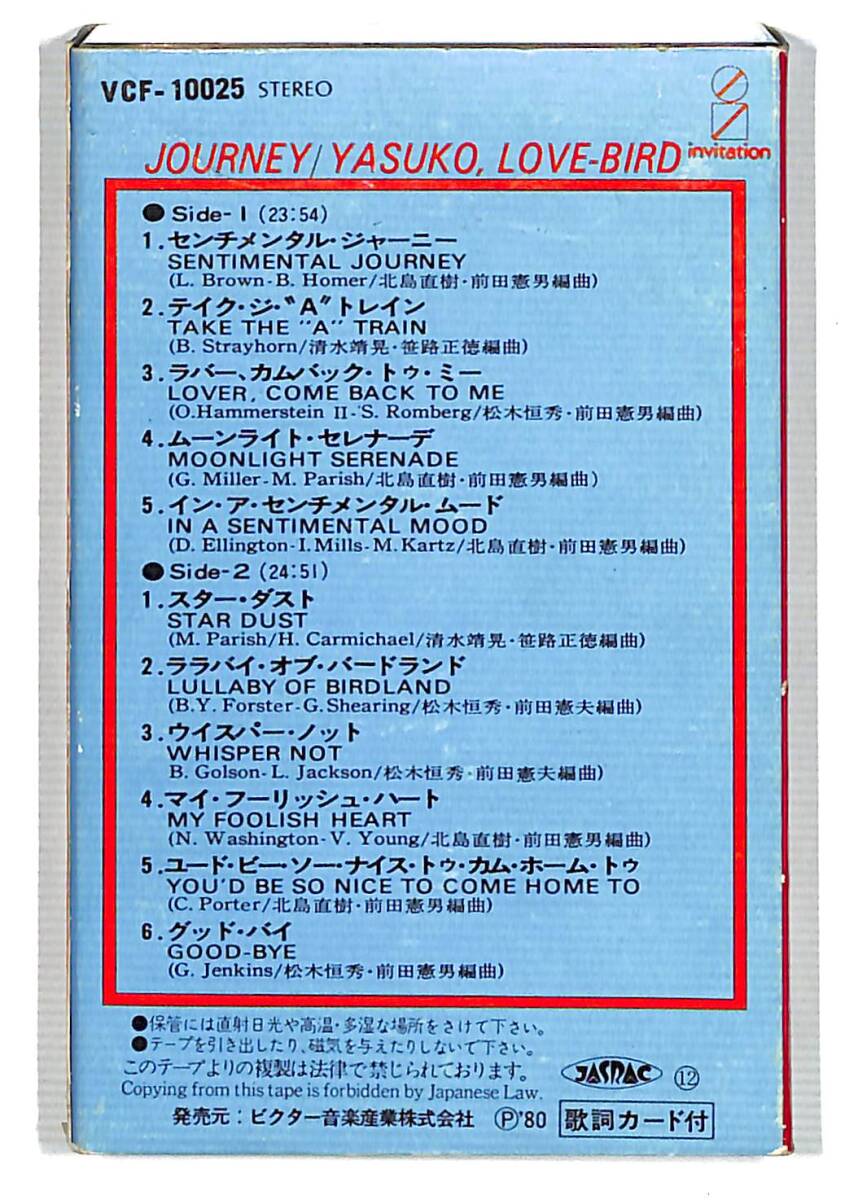 VCF-10025 STEREO
invitation
JOURNEY/YASUKO, LOVE-BIRD
●Side-1 (23:54)
1.センチメンタル・ジャーニー
SENTIMENTAL JOURNEY
(L. Brown-B. Homer/北島直樹・前田憲男編曲)
2.テイク・ジ・“A”トレイン
TAKE THE "A" TRAIN
(B. Strayhorn/清水靖晃・笹路正徳編曲)
3.ラバー、カムバック・トゥ・ミー
LOVER, COME BACK TO ME
(O.Hammerstein II-S. Romberg/松木恒秀・前田憲男編曲)
4.ムーンライト・セレナーデ
MOONLIGHT SERENADE
(G. Miller-M. Parish/北島直樹・前田憲男編曲)
5.イン・ア・センチメンタル・ムード
IN A SENTIMENTAL MOOD
(D. Ellington-I.Mills-M.Kartz/北島直樹・前田憲男編曲)
●Side-2 (24:51)
1.スター・ダスト
STAR DUST
(M. Parish/H. Carmichael/清水靖晃・笹路正徳編曲)
2.ララバイ・オブ・バードランド
LULLABY OF BIRDLAND
(B.Y. Forster-G.Shearing/松木恒秀・前田憲夫編曲)
3.ウイスパー・ノット
WHISPER NOT
B. Golson-L. Jackson/松木恒秀・前田憲夫編曲)
4.マイ・フーリッシュ・ハート
MY FOOLISH HEART
(N. Washington-V. Young/北島直樹・前田憲男編曲)
5.ユード・ビー・ソー・ナイス・トゥ・カム・ホーム・トゥ
YOU'D BE SO NICE TO COME HOME TO
(C. Porter/北島直樹・前田憲男編曲)
6.グッド・バイ
GOOD-BYE
(G. Jenkins/松木恒秀・前田憲男編曲)
●保管には直射日光や高温・多湿な場所をさけて下さい。
●テープを引き出したり、磁気を与えたりしないで下さい。
このテープよりの複製は法律で禁じられております。
Copying from this tape is forbidden by Japanese Law.
JASRAC ⑫
発売元：ビクター音楽産業株式会社 Ⓟ'80 歌詞カード付